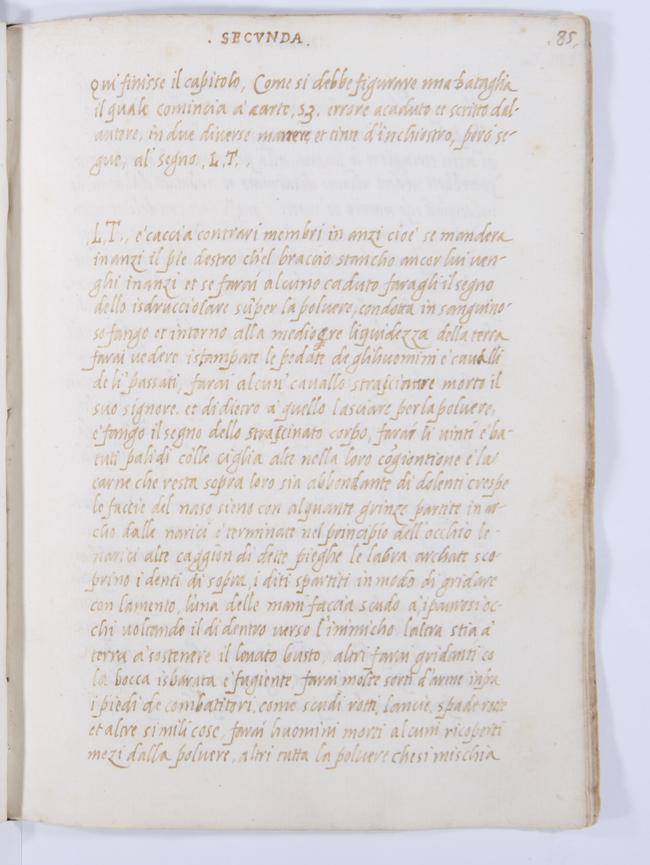 . SECVNDA .
. 85.
Qui finisse il capitolo, Come si debbe figurare una bataglia
il quale comincia à carte, 53, errore acaduto et scritto dal-
autore, in due diverse manere, et tinte d'inchiostro, però se-
gue, al segno, .L.T.,
.L.T., e caccia contrari membri in anzi cioè se mandera
inanzi il pie destro ch'el braccio stancho ancor lui ven-
ghi inanzi et se farai alcuno caduto faragli il segno
dello isdrucciolare super la poluere, condotta in sanguino-
so fango et intorno alla mediocre liquidezza della terra
farai vedere istampate le pedate de gli huomini e cavalli
de li passati, farai alcun' cavallo strascinare morto il
suo signore. et di dietro à quello lasciare per la poluere,
e fango il segno dello strascinato corpo, farai li vinti e ba-
tuti palidi colle ciglia alte nella loro cogiontione e la
carne che resta sopra loro sia abbondante di dolenti crespe
le faccie del naso sieno con alquante grinze partite in ar-
cho dalle narici e terminate nel principio dell'occhio le
narici alte caggion di dette pieghe le labra archate sco-
prino i denti di sopra, i diti spartiti in modo di gridare
con lamento, l'una delle mani faccia scudo a i paurosi oc-
chi voltando il di dentro verso l'inimicho laltra stia à
terra à sostenere il levato busto, altri farai gridanti co
la bocca isbarata e fugiente, farai molte sorti d'arme infra
i piedi de combatitori, come scudi rotti, lancie, spade rotte
et altre simili cose, farai huomini morti alcuni ricoperti
mezi dalla poluere, altri tutta la poluere che si mischia